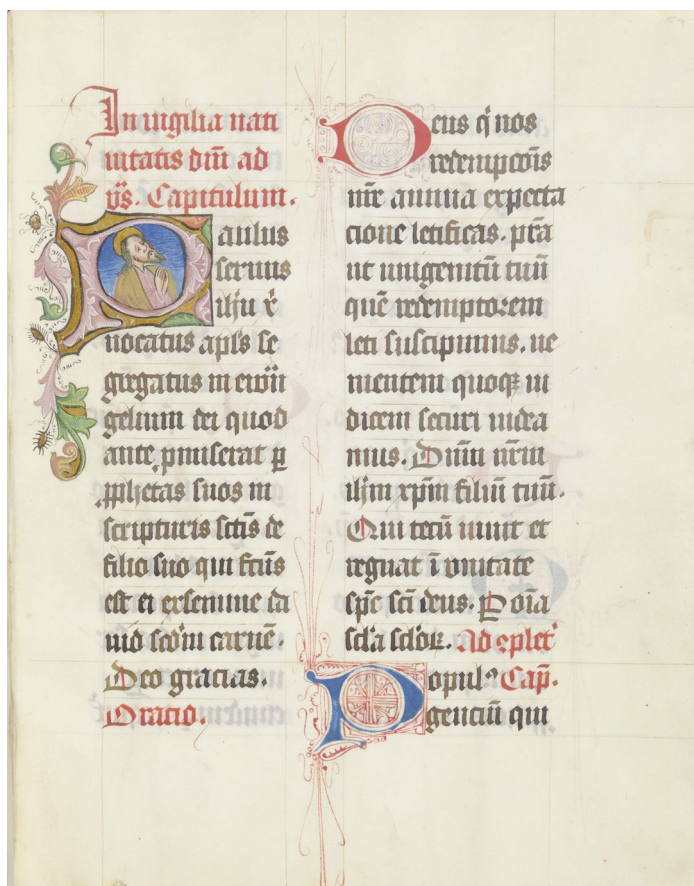 In vigilia nati
uitatis dnī ad
vs̄. Capitulum.
Paulus
seruus
ihū xī
uocatus apl̄s se
gregatus in ewā
gelium dei quod
ante ꝓmiserat ꝑ
ꝓphetas suos in
scripturis sctīs de
filio suo qui fctūs
est ei ex semine da
uid scd̄m carnē.
Deo gracias.
Oratio.
Deus q' nos
redempcōis
nr̄e annua expecta
cione letificas. p̄ta
ut unigenitū tuū
quē redemptorem
leti suscipimus. ue
nientem quoqꝫ iu
dicem securi uidea
mus. Dnm̄ nr̄m
ihm̄ xpm̄ filiū tuū.
Qui tecū uiuit et
regnat ī vnitate
sp̄c scī deus. P oīa
scl̄a scl̄oꝝ. Ad cplet'
Popul' Cap̄.
genciū qui